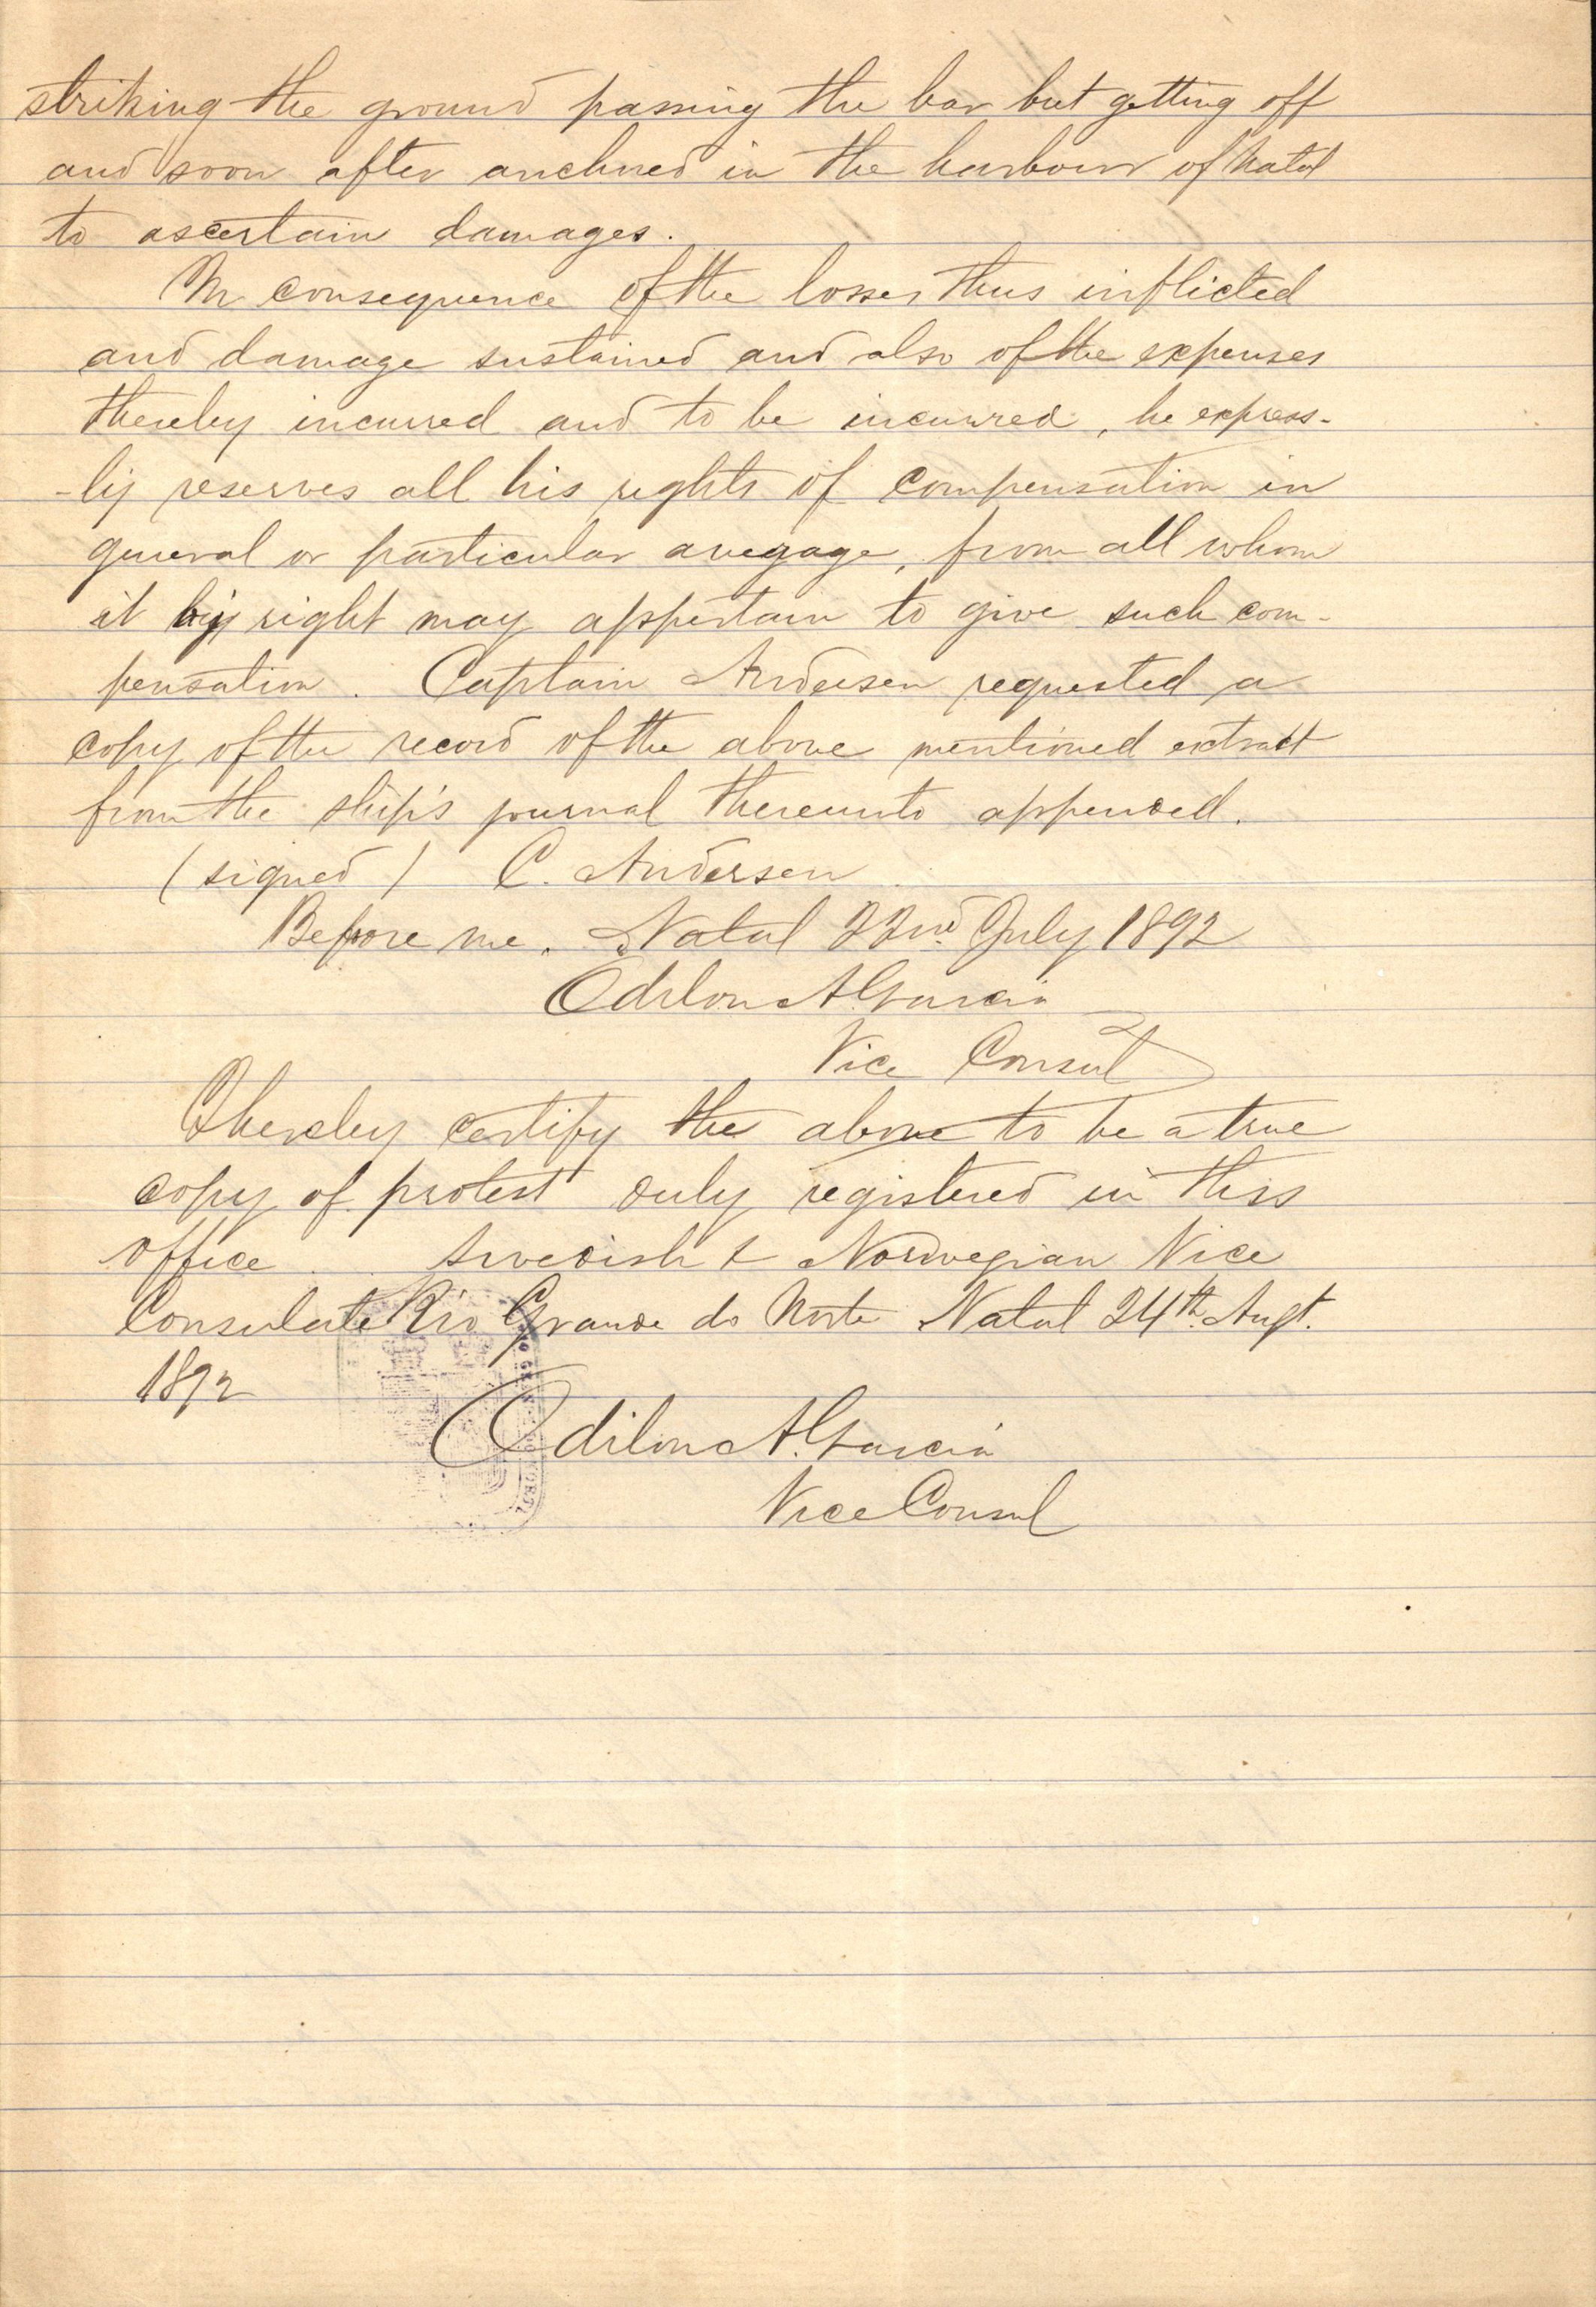 striking the ground passing the bar but getting off
and soon after anchored in the harbour of Natal
to ascertain damages.
In consequence of the losses thus inflicted
and damage sustained and also of the expenses
thereby incurred and to be incurred, he express-
-ly reserves all his rights of compensation in
general or particular avegage, from all whom
it by right may appertain to give such com-
pensation. Captain Andersen requested a
copy of the record of the above mentioned extract
from the ship's journal thereunto appended.
(signed) C. Andersen
Before me. Natal 22nd July 1892
Odilon A. Garcia
Vice Consul
I hereby certify the above to be a true
copy of protest duly registered in this
office. Swedish & Norwegian Vice
Consulate Rio Grande do Norte Natal 24th Augt.
1892
Odilon A. Garcia
Vice Consul